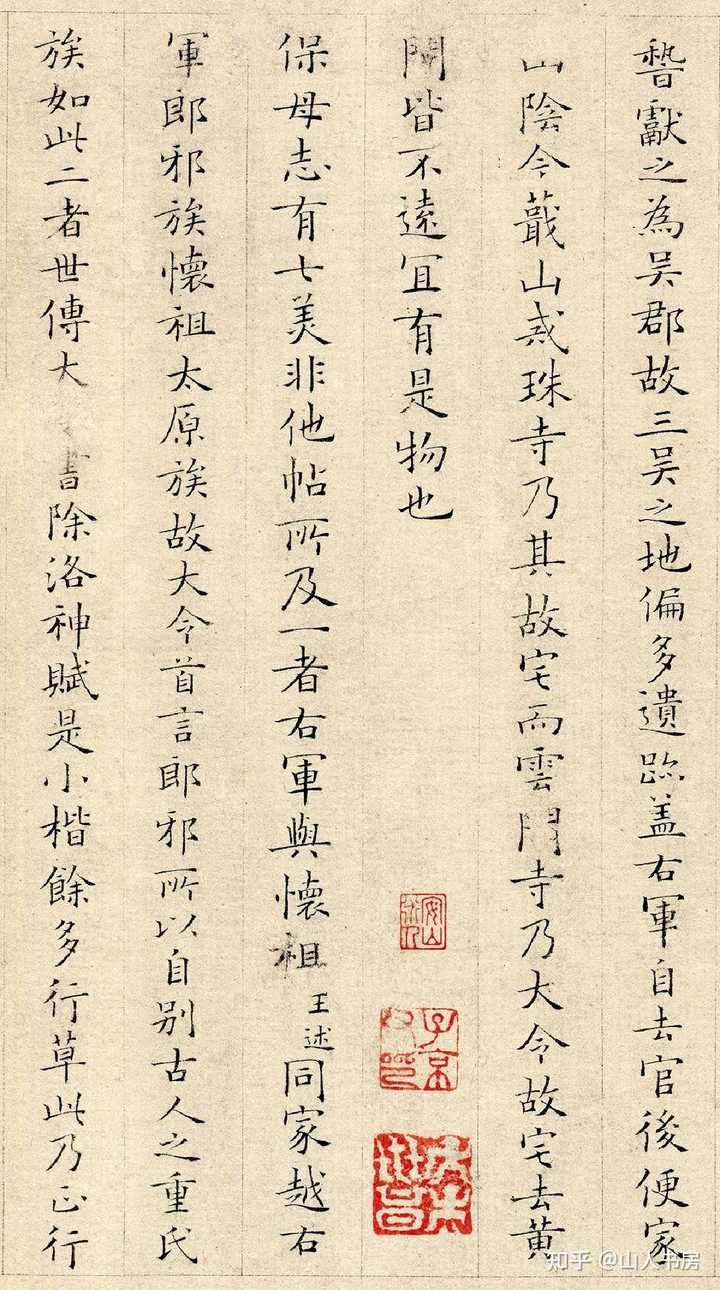 獻之為吳郡故三吳之地偏多遺跡蓋右軍自去官後便家
山陰今蕺山戒珠寺乃其故宅而雲門寺乃大令故宅去黄
皆不遠宜有是物也
保母志有七美非他帖所及一者右軍與懷祖王述同家越右
軍郎邪族懷祖太原族故大令首言郎邪所以自別古人之重氏
族如此二者世傳大書除洛神賦是小楷餘多行草此乃正行
子京父印
知乎 @山人书房